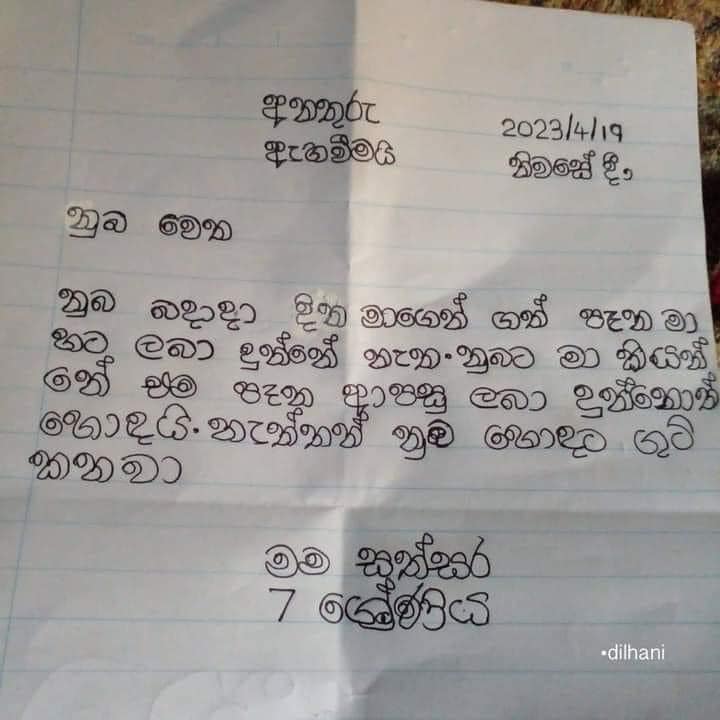 අනතුරු
ඇඟවීමයි
2023/4/19
නිවසේ දී.
නුබ වෙත
නුබ බදාදා දින මාගෙන් ගත් පෑන මා
හට ලබා දුන්නේ නැත. නුබට මා කියන්
නේ එම පෑන ආපසු ලබා දුන්නොත්
හොඳයි. නැත්නත් නුබ හොඳට ගුටි
කනවා
මම සත්සර
7 ශ්‍රේණිය
•dilhani